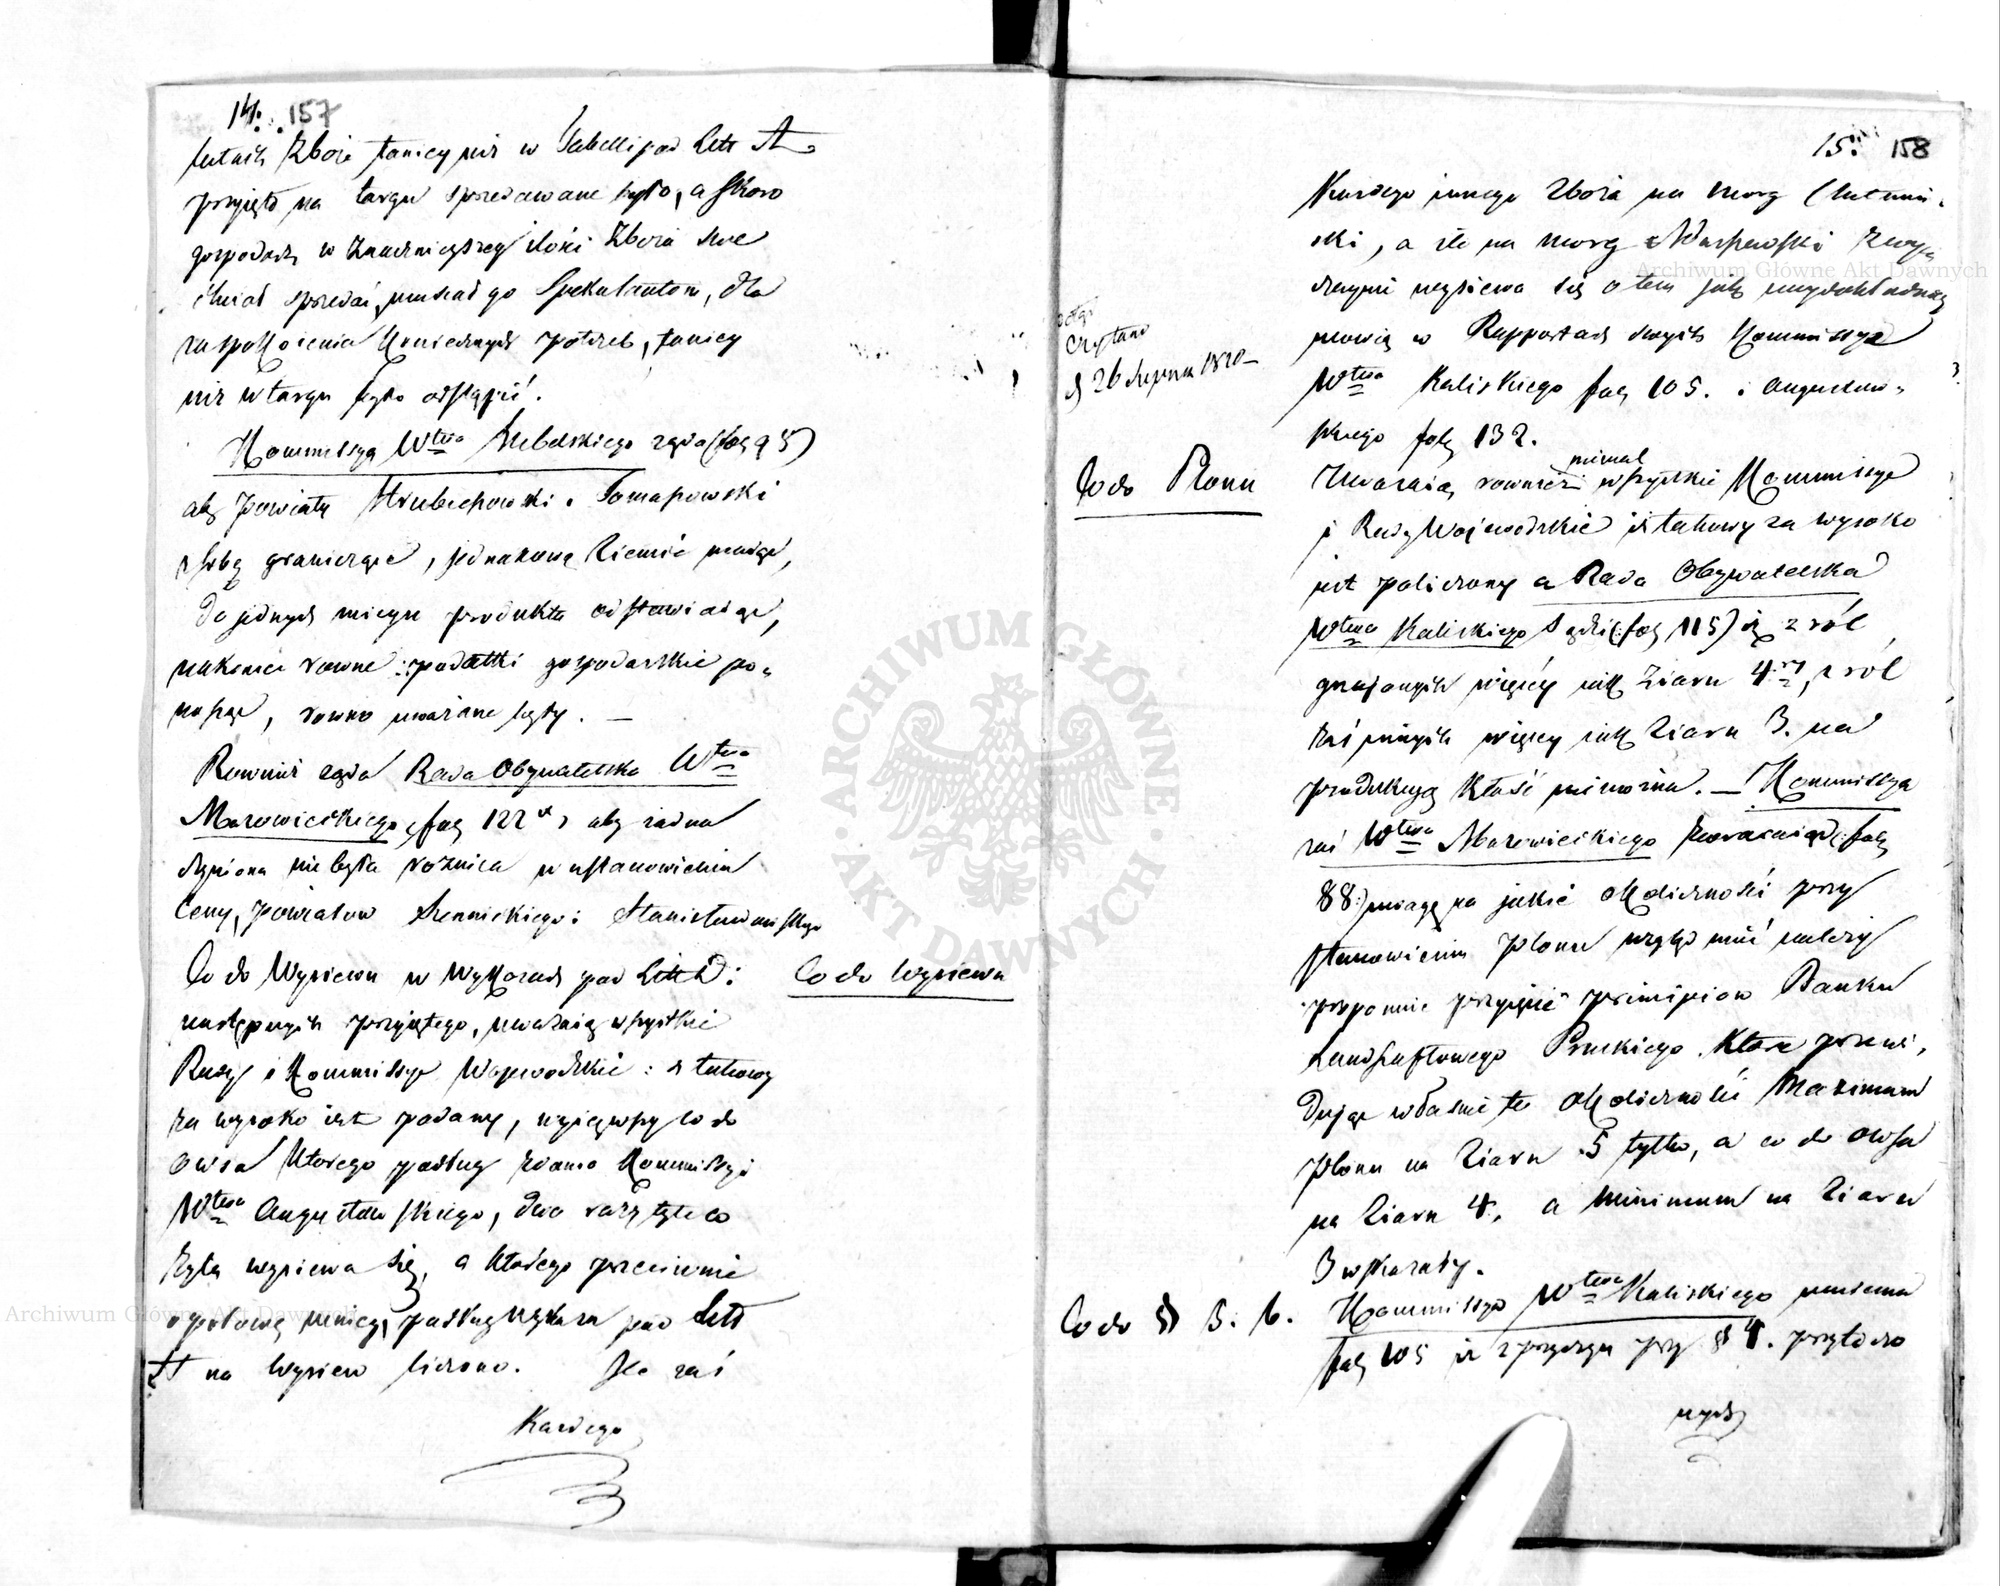 14. 157
latach Zboże taniey niż w Tabelli pod Litt A
przyięto na targu sprzedawane było, a skoro
gospodarz w znacznieyszey ilości Zboża swe
chciał sprzedać, musiał go Spekulantom, dla
zaspokoienia koniecznych potrzeb, taniey
niż w targu było odstąpić.
Kommissya Wtwa Lubelskiego żąda (fol 95)
aby powiaty Hrubieszowski i Tomaszowski
z sobą graniczące, jednakową Ziemię maiące,
do jednych mieysc produkta odstawiaiące,
nakoniec rowne podatki gospodarskie po-
noszące, rowno uważane były. —
Rownież żąda Rada Obywatelska Wtwa
Mazowieckiego, fol 122 aby żadna
czyniona nie była rożnica w ustanowieniu
Ceny, powiatow Siennickiego i Stanisławowskiego
Co do Wysiewu w Wykazach pod Litt D:
Co do Wysiewu
następnych przyiętego, uważaią wszystkie
Rady i Kommissye Wojewodzkie: iż takowy
za wysoko iest podany, wyiąwszy co do
Owsa którego podług zdania Kommissyi
Wtwa Augustowskiego, dwa razy tyle co
Żyta wysiewa się, a którego przeciwnie
o połowę mniey, podług wykazu pod Litt
A na Wysiew liczono. Ile zaś
Każdego
15. 158
Każdego innego Zboża na morg Chełmiń-
ski, a ile na morg Warszawski zwy-
czaynie wysiewa się o tem jak naydokładniey
mowią w Rapportach swych Kommissye
Wtwa Kaliskiego fol 105. i Augustow-
skiego fol 132.
Czytano
d 26 Sierpnia 1820
Co do Plonu
Uważaią rownież niemal wszystkie Kommissye
i Rady Wojewodzkie iż takowy za wysoko
jest policzony a Rada Obywatelska
Wtwa Kaliskiego sądzi (fol 115) iż z ról
gnojonych więcey jak Ziarn 4ry, z ról
zaś innych więcey jak Ziarn 3. na
produkcyą kłaść niemożna. — Kommissya
zaś Wtwa Mazowieckiego zwracaiąc (fol
88) uwagę na jakie okoliczności przy
stanowieniu plonu wzgląd mieć należy
proponuie przyięcie principiow Banku
Landszaftowego Pruskiego które przewi-
duiąc właśnie te okoliczności Maximum
plonu na Ziarn 5 tylko, a co do Owsa
na Ziarn 4, a Minimum na Ziarn
3 wskazały.
Co do § 3. b.
Kommissya Wtwa Kaliskiego mniema
fol 105 iż z przyczyn przy § 4. przytoczo
nych